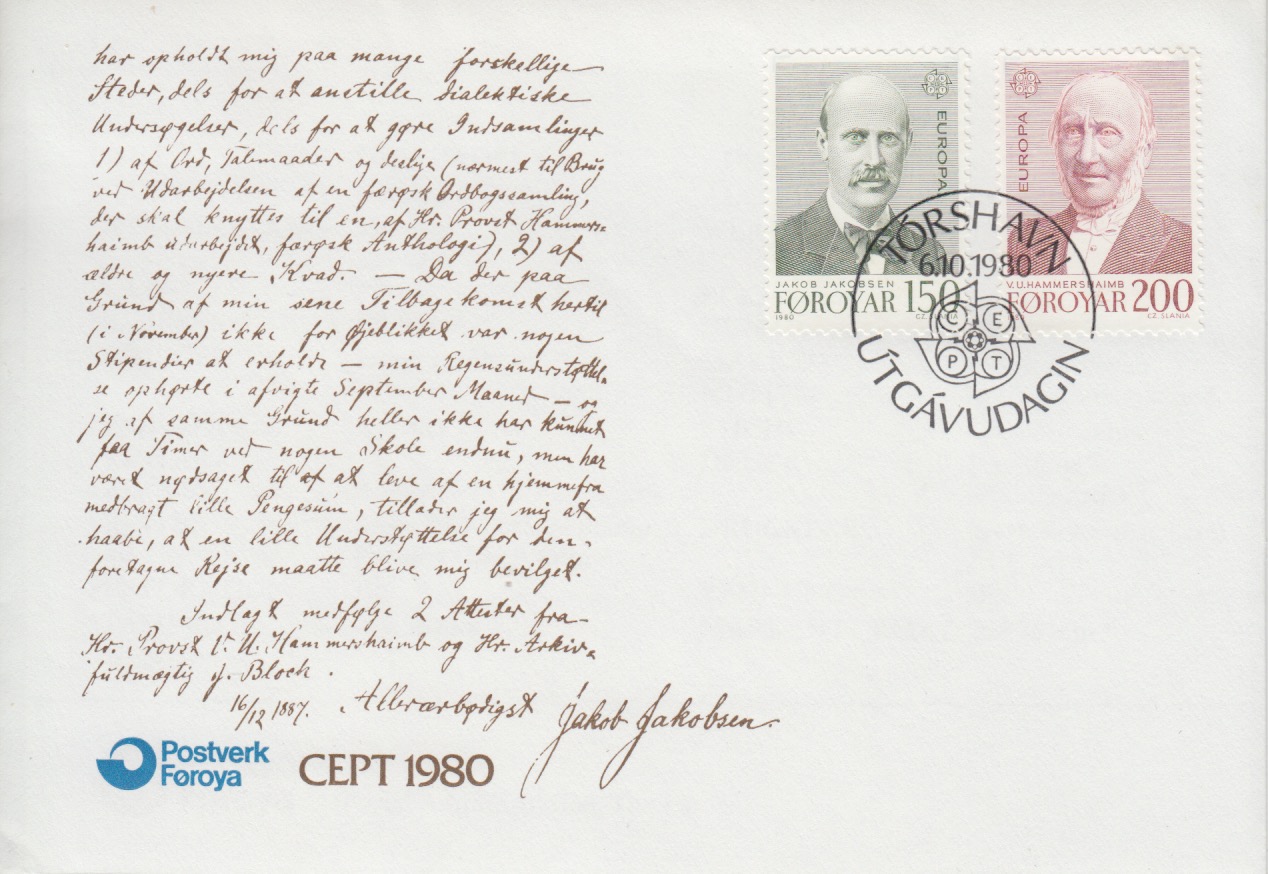 har opholdt mig paa mange forskellige
Steder, dels for at anstille dialektiske
Undersøgelser, dels for at gøre Indsamlinger
1) af Ord, Talemaader og deslige (nærmest til Brug
ved Udarbejdelsen af en færøsk Ordbogssamling,
der skal knyttes til en, af Hr. Provst Hammers-
haimb udarbejdet, færøsk Anthologi), 2) af
ældre og nyere Kvad. — Da der paa
Grund af min sene Tilbagekomst hertil
(i November) ikke for Øjeblikket var nogen
Stipendier at erholde — min Regensunderstøttel-
se ophørte i afvigte September Maaned — og
jeg af samme Grund heller ikke har kunnet
faa Timer ved nogen Skole endnu, men har
været nødsaget til af at leve af en hjemmefra
medbragt lille Pengesum, tillader jeg mig at
haabe, at en lille Understøttelse for den-
foretagne Rejse maatte blive mig bevilget.
Indlagt medfølge 2 Attester fra
Hr. Provst V. U. Hammershaimb og Hr. Arkiv-
fuldmægtig J. Bloch.
16/12 1887. Allerærbødigst Jakob Jakobsen.
Postverk
Føroya
CEPT 1980
EUROPA
JAKOB JAKOBSEN
FØROYAR 150
1980 CZ. SLANIA
EUROPA
V. U. HAMMERSHAIMB
FØROYAR 200
CZ. SLANIA
TÓRSHAVN
6.10.1980
C E
P T
ÚTGÁVUDAGIN